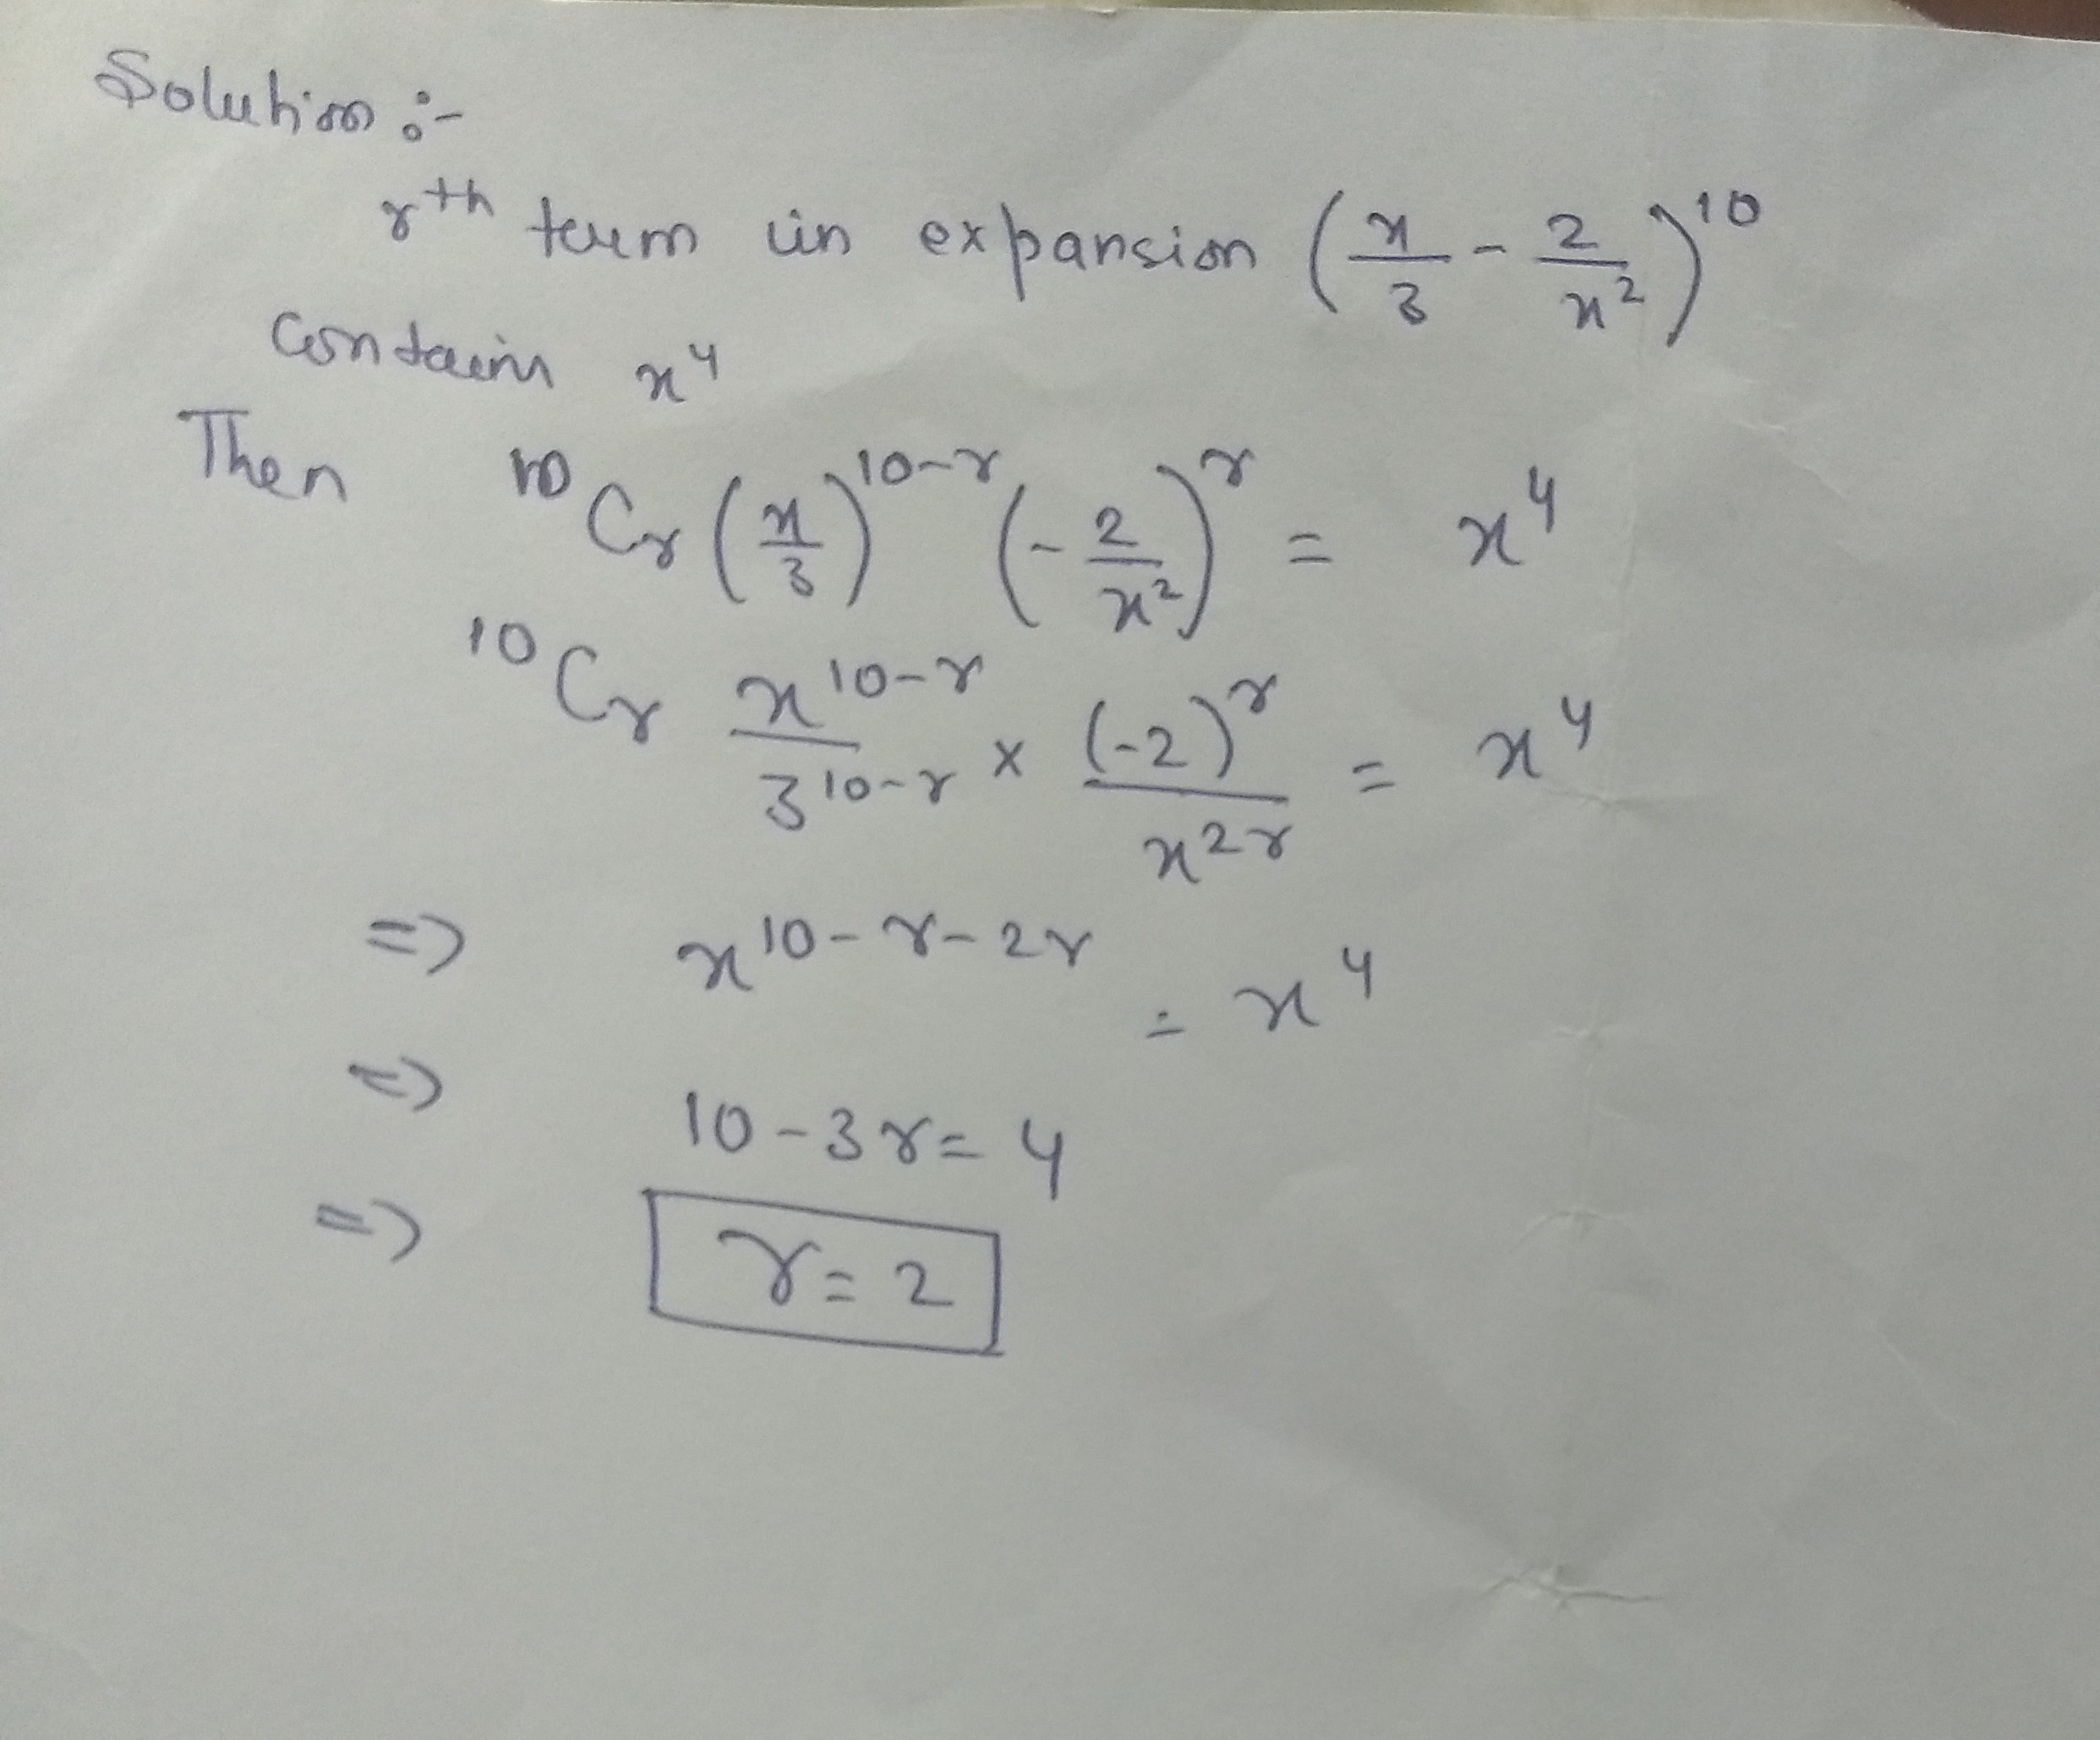 Solution :-
rth term in expansion (x/3 - 2/x²)¹⁰
contains x⁴
Then ¹⁰Cr (x/3)^(10-r) (-2/x²)^r = x⁴
¹⁰Cr x^(10-r)/3^(10-r) × (-2)^r/x^(2r) = x⁴
=> x^(10-r-2r) = x⁴
=> 10-3r = 4
=> r = 2